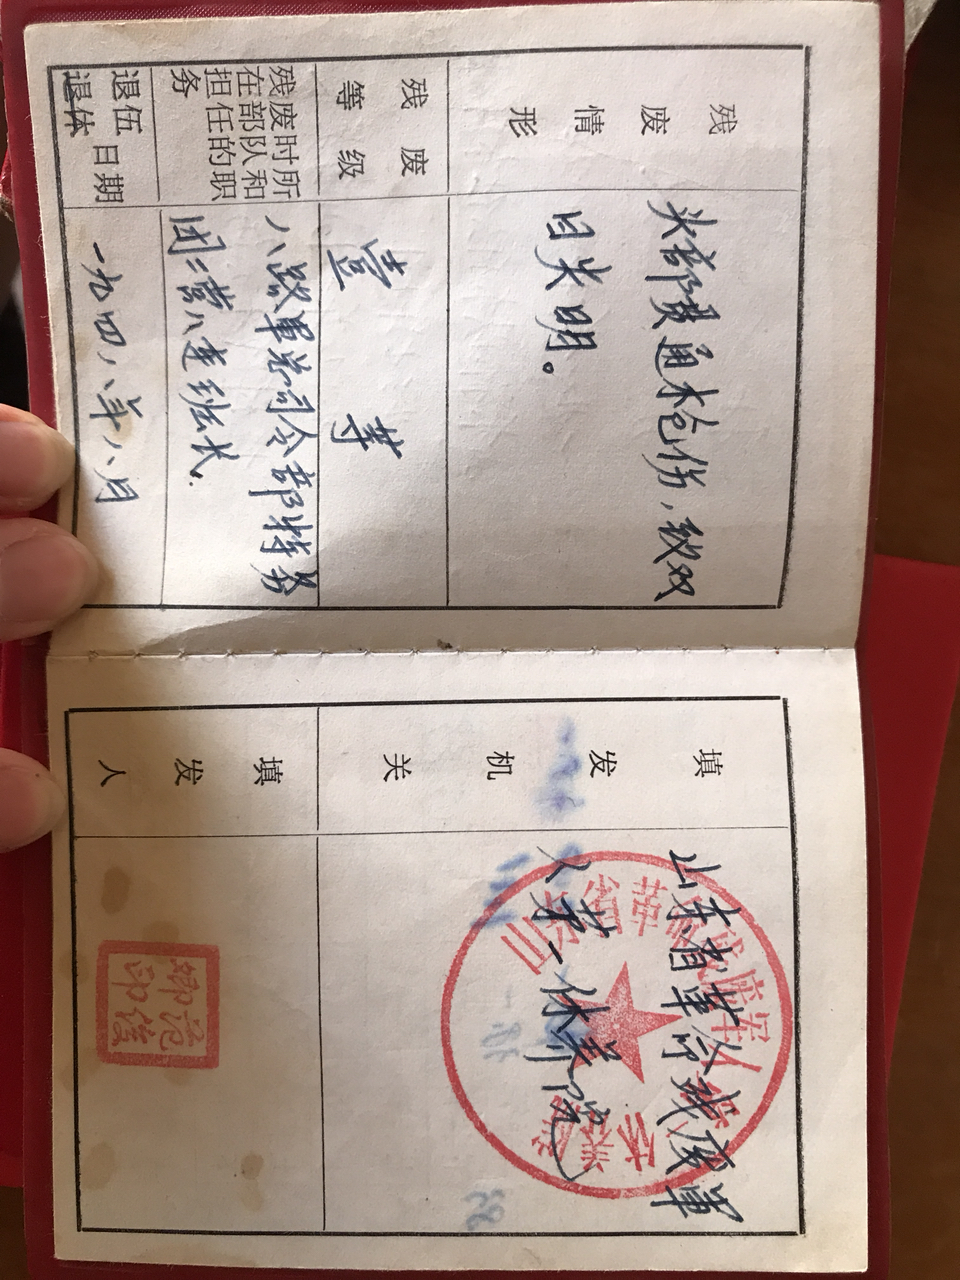 残废情形
头部贯通木仓伤，致双
目失明。
残废等级
壹等
残废时所
在部队和
担任的职
务
八路军总司令部特务
团二营八连班长.
退伍
退休
日期
一九四八年八月
填发机关
山东省革命残废军
人第一休养院
填发人